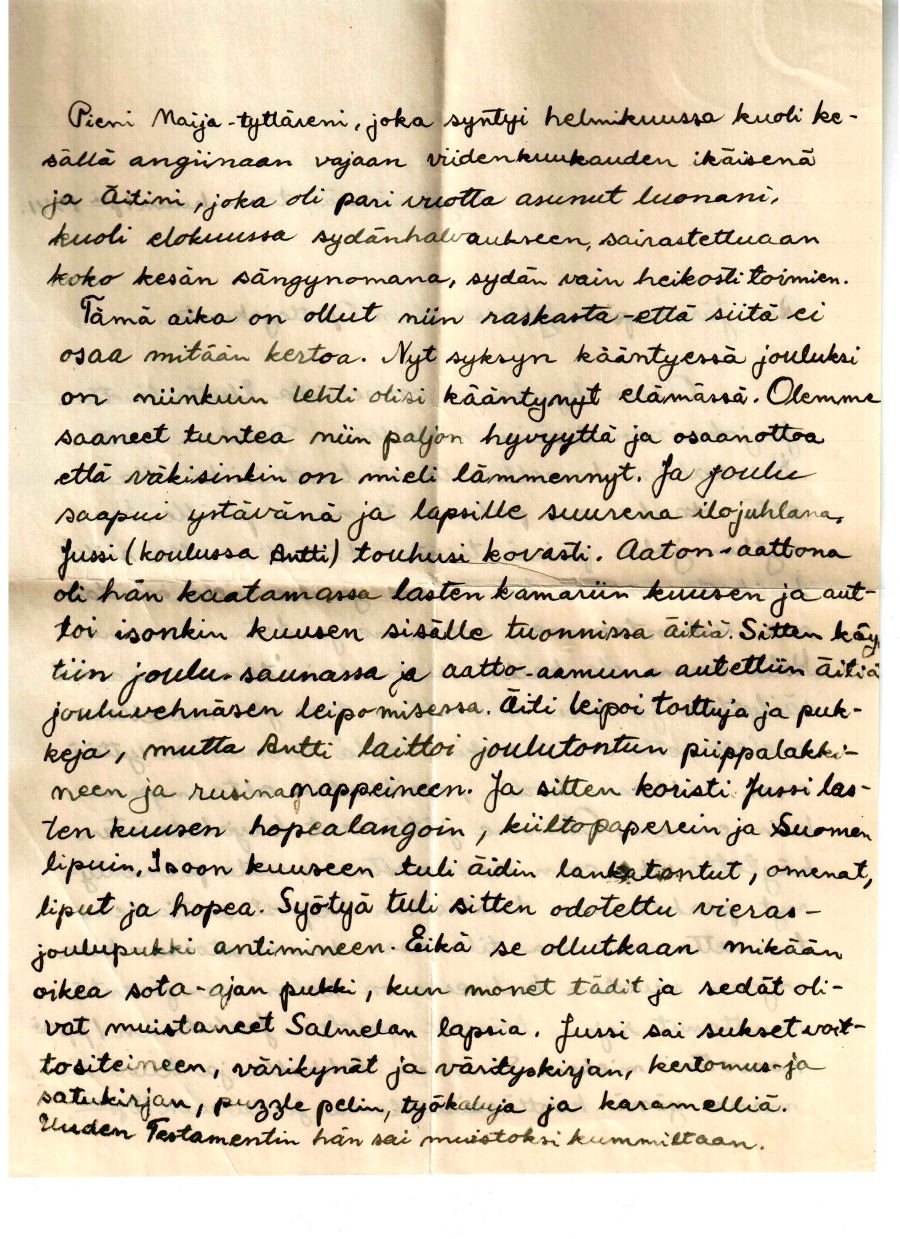 Pieni Maija-tyttäreni, joka syntyi helmikuussa kuoli ke-
sällä angiinaan vajaan viidenkuukauden ikäisenä
ja Äitini, joka oli pari vuotta asunut luonani,
kuoli elokuussa sydänhalvaukseen, sairastettuaan
koko kesän sängynomana, sydän vain heikosti toimien.
Tämä aika on ollut niin raskasta-että siitä ei
osaa mitään kertoa. Nyt syksyn kääntyessä jouluksi
on niinkuin lehti olisi kääntynyt elämässä. Olemme
saaneet tuntea niin paljon hyvyyttä ja osaanottoa
että väkisinkin on mieli lämmennyt. Ja joulu
saapui ystävänä ja lapsille suurena ilojuhlana.
Jussi (koulussa Antti) touhusi kovasti. Aaton-aattona
oli hän kaatamassa lasten kamariin kuusen ja aut-
toi isonkin kuusen sisälle tuonnissa äitiä. Sitten käy
tiin joulu-saunassa ja aatto-aamuna autettiin äitiä
jouluvehnäsen leipomisessa. Äiti leipoi torttuja ja puk-
keja, mutta Antti laittoi joulutontun piippalakki-
neen ja rusinanappeineen. Ja sitten koristi Jussi las-
ten kuusen hopealangoin, kiiltopaperein ja Suomen
lipuin. Isoon kuuseen tuli äidin lankatontut, omenat,
liput ja hopea. Syötyä tuli sitten odotettu vieras-
joulupukki antimineen. Eikä se ollutkaan mikään
oikea sota-ajan pukki, kun monet tädit ja sedät oli-
vat muistaneet Salmelan lapsia. Jussi sai sukset voit-
tositeineen, värikynät ja värityskirjan, kertomus-ja
satukirjan, puzzle pelin, työkaluja ja karamelliä.
Uuden Testamentin hän sai muistoksi kummiltaan.